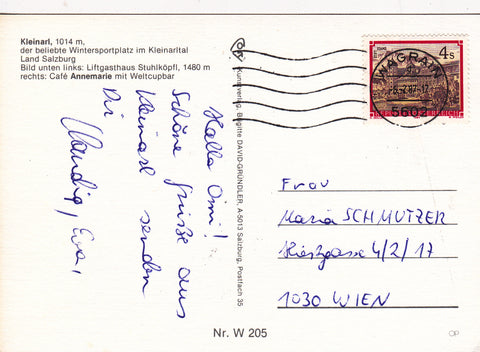 Kleinarl, 1014 m,
der beliebte Wintersportplatz im Kleinarltal
Land Salzburg
Bild unten links: Liftgasthaus Stuhlköpfl, 1480 m
rechts: Café Annemarie mit Weltcupbar
Hallo Omi!
Schöne Grüße aus
Kleinarl senden
Dir
Claudia, Eva,
Kunstverlag Brigitte DAVID-GRÜNDLER, A-5013 Salzburg, Postfach 35
4s
WAGRAIN
5602
Frau
Maria SCHMUTZER
4/2/17
1030 WIEN
Nr. W 205
OP